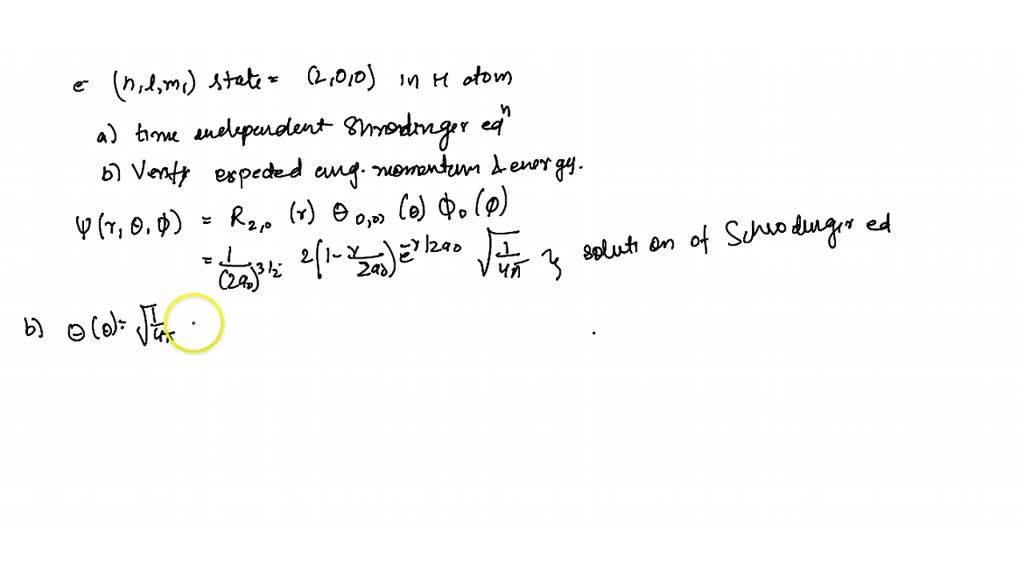 e⁻ (n, l, mₗ) state = (2,0,0) in H atom
a) time independent Shrodinger eqⁿ
b) Verify expected ang. momentum & energy.
ψ(r, θ, ϕ) = R₂,₀ (r) Θ₀,₀, (θ) Φ₀ (ϕ)
= 1/(2a₀)^3/2 2(1 - r/2a₀) e^-r/2a₀ √(1/4π) } solution of Schrodinger eq
b) Θ(θ) = √(1/4π